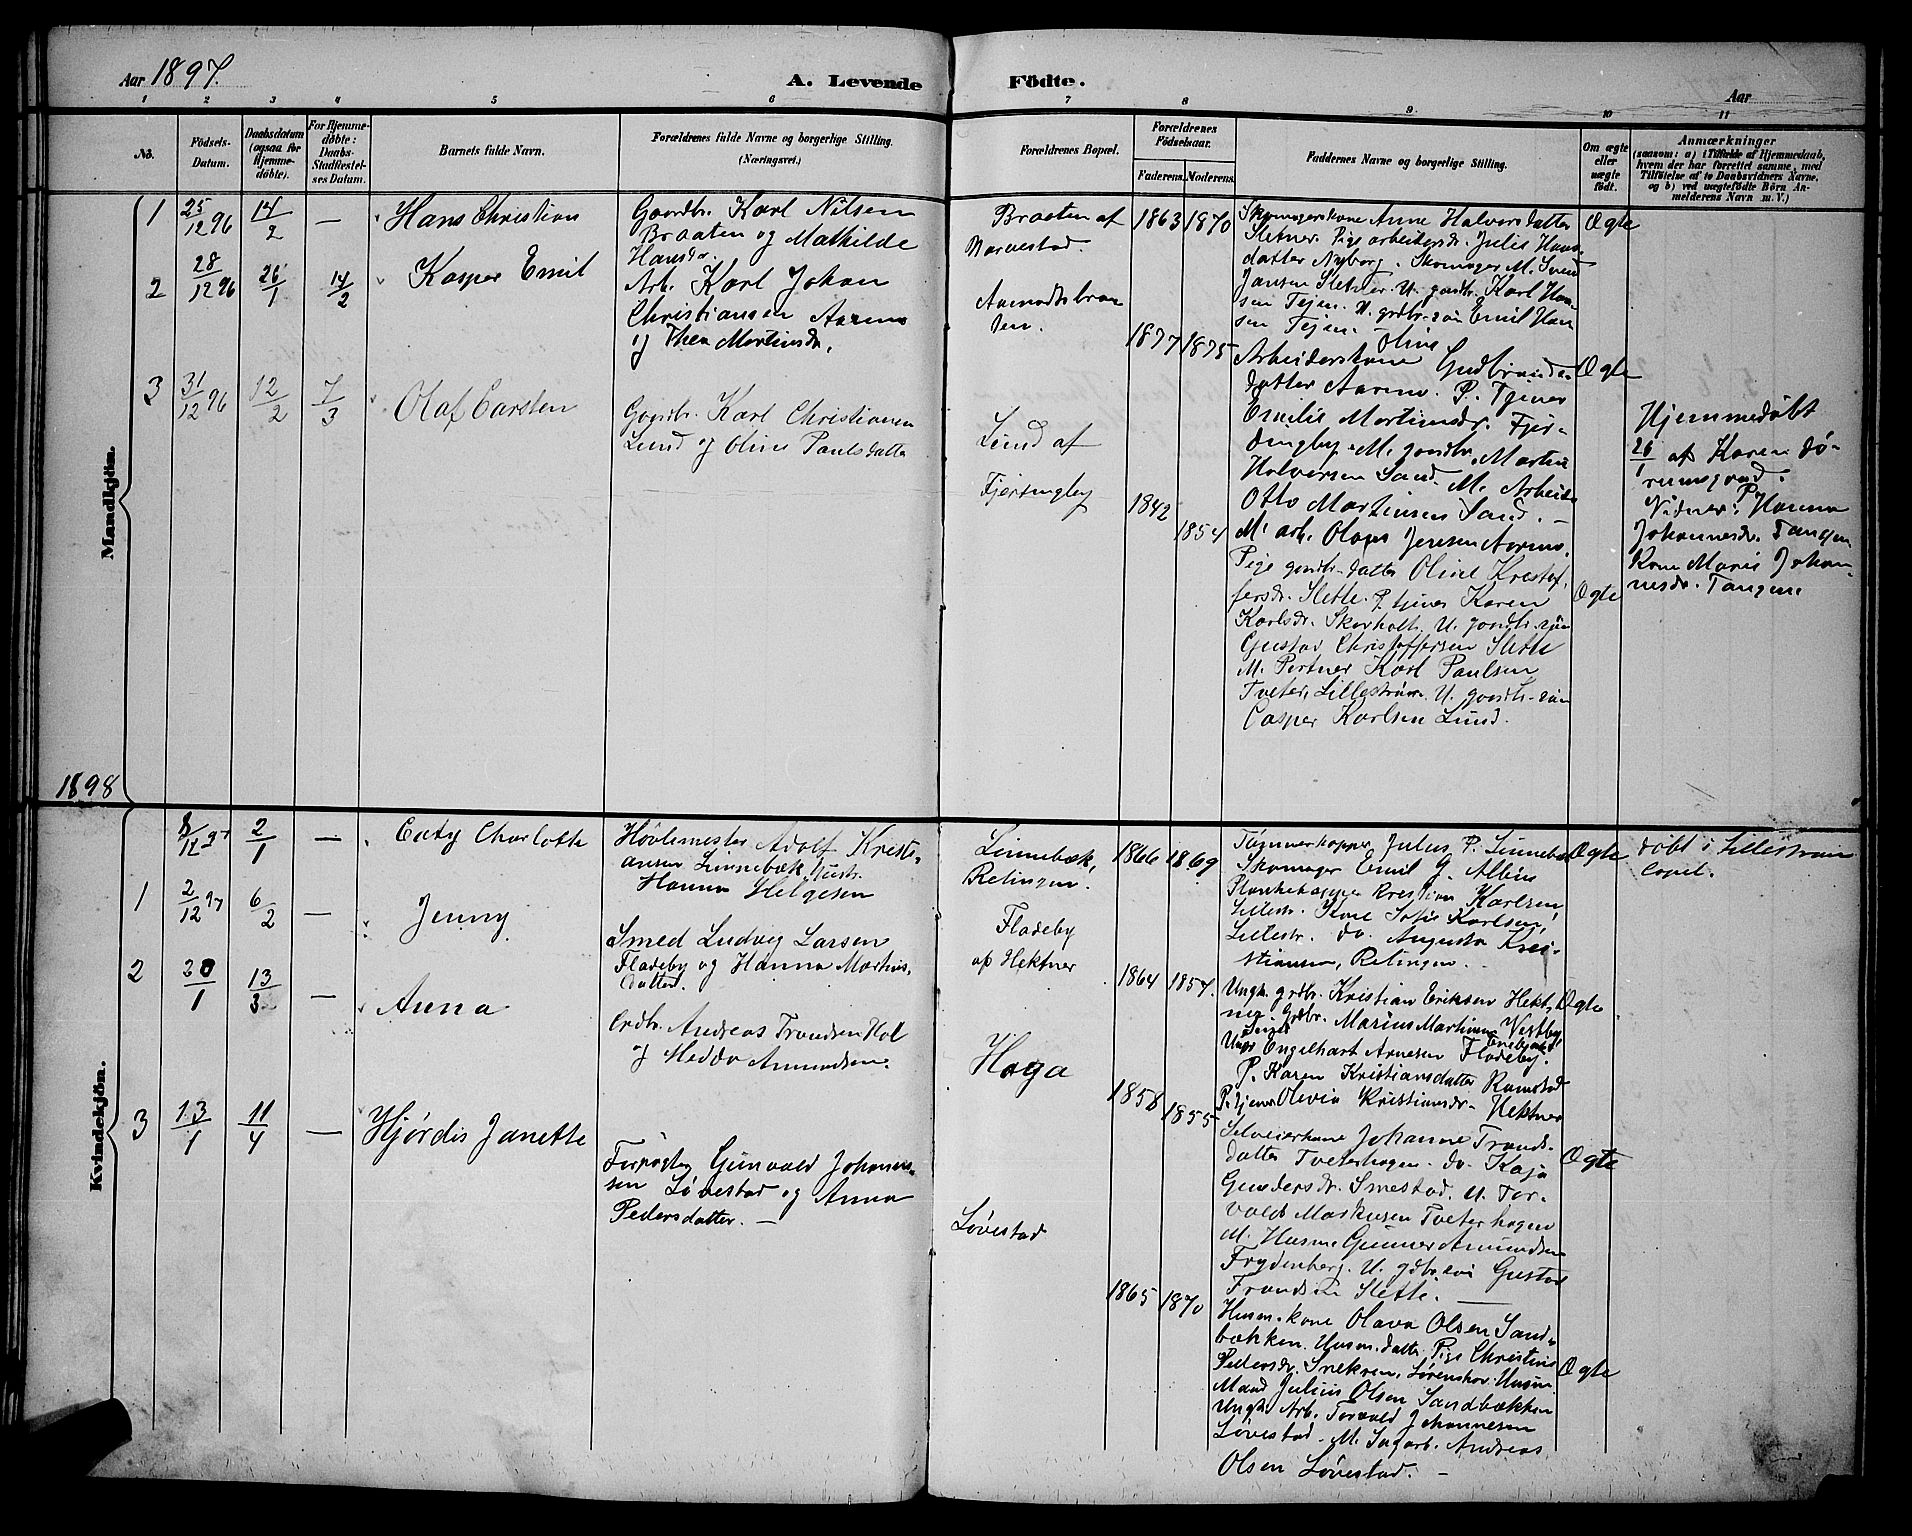 Aar 1897.
A. Levende Födte.
Aar
1 2 3 4 5 6 7 8 9 10 11
No.
Födsels-
Datum.
Daabsdatum
(ogsaa for
Hjemme-
döbte).
For Hjemme-
döbte:
Daabs-
Stadfæstel-
ses Datum.
Barnets fulde Navn.
Forældrenes fulde Navne og borgerlige Stilling.
(Næringsvei.)
Forældrenes Bopæl.
Forældrenes
Födselsaar.
Faderens. Moderens.
Faddernes Navne og borgerlige Stilling.
Om ægte
eller
uægte
födt.
Anmærkninger
(saasom: a) i Tilfælde af Hjemmedaab,
hvem der har forrettet samme, med
Tilföielse af to Daabsvidners Navne,
og b) ved uægtefödte Börn An-
melderens Navn m. V.)
Mandkjön.
1 25/12 96 14/2 — Hans Christian
Gaardbr. Karl Nilsen
Braaten og Mathilde
Hansdr.
Braaten af
Narvestad
1863 1870
Skomagerkone Anne Halvorsdatter
Sletner. Pige arbeidsgr. Julie Hans
datter Nyborg. Skomager M. Svend
Jansen Sletner. U. gaardbr. Karl Han
sen Tejen. U. grdbr. søn Emil Han
sen Tejen.
Ægte
2 28/12 96 26/1 14/2 Kasper Emil
Arb. Karl Johan
Christiansen Aamo
og Thea Martinsdr.
Aamodtsbraa
ten.
1877 1875
Olive
Arbeiderskone Gudbrands-
datter Aamo. P. Tjener
Emilie Martinsdr. Fjer-
dingby. M. gaardbr. Martin
Halversen Sand. M. Arbeid
Otto Martinsen Sand. —
M. arb. Olaves Jensen Aamo.
Ægte
Hjemmedöbt
26/1 af Karen Sö-
rumsgrad.
Vidner: P. Hanna
Johannesdr. Tangen
Kone Marie Johan-
nesdr. Tangen.
3 31/12 96 12/2 7/3 Olaf Carsten
Gaardbr. Karl Christiansen
Lund og Oline Paulsdatter
Lund af
Fjerdingby
1842
1854
Pige gaardbr. datter Oline Kristof-
fersdr. Slette. P. tjener Karen
Karlsdr. Skarholt. U. gaardbr. søn
Gustav Christoffersen Slette
M. Portner Karl Paulsen
Tveter, Lilleström. U. gaardbr. søn
Casper Karlsen Lund.
Ægte
1898
Kvindekjön.
8/12 97 2/1 — Caty Charlotte
Hövlemester Adolf Kristi-
ansen Linnebæk, Hustr.
Hanna Helgesen
Linnebæk,
Relingen.
1866 1869
Tømmerhopper Julius P. Linnebæk
Skomager Emil G. Albin
Plankehopper Kristian Karlsen
Lillestr. Kone Sofie Karlsen,
Lillestr. do. Augusta Kris-
tiansen, Relingen.
Ægte
döbt i Lilleström
Capel.
1 2/12 97 6/2 — Jenny
Smed Ludvig Larsen
Fladeby og Hanna Martins-
datter.
Fladeby
af Hektner
1864 1857.
Ungk. grdbr. Kristian Eriksen Hekt-
ner. Grdbr. Marius Martinsen Vestby
Enebak
Ungk. Engelhart Arnesen Fladeby.
P. Karen Kristiansdatter Ramstad
P. tjener Olivia Kristiansdr. Hektner
Ægte
2 20/1 13/3 — Anna
Grdbr. Andreas Trondsen Hol
og Hedda Amundsen.
Haga
1858
1855
Selveierkone Johanne Tronds-
datter Tveterhagen. do. Kaja
Gundersdr. Smestad. U. Tor-
vald Markusen Tveterhagen
M. Husm. Gunner Amundsen
Frydenberg. U. gdbr. søn Gustav
Trondsen Slette. —
Ægte
3 13/1 11/4 — Hjördis Janette
Forpagter Gunvald Johannes-
sen Lövestad og Anna
Pedersdatter. —
Lövestad
1865 1870
Husm. kone Olava Olsen Sand-
bækken. Husm. datter Pige Christine
Pedersdr. Snekren, Lørenskov. Husm.
Mand Julius Olsen Sandbækken
Ungk. Arb. Torvald Johannesen
Lövestad. M. Sagarb. Andreas
Olsen Lövestad. —
Ægte